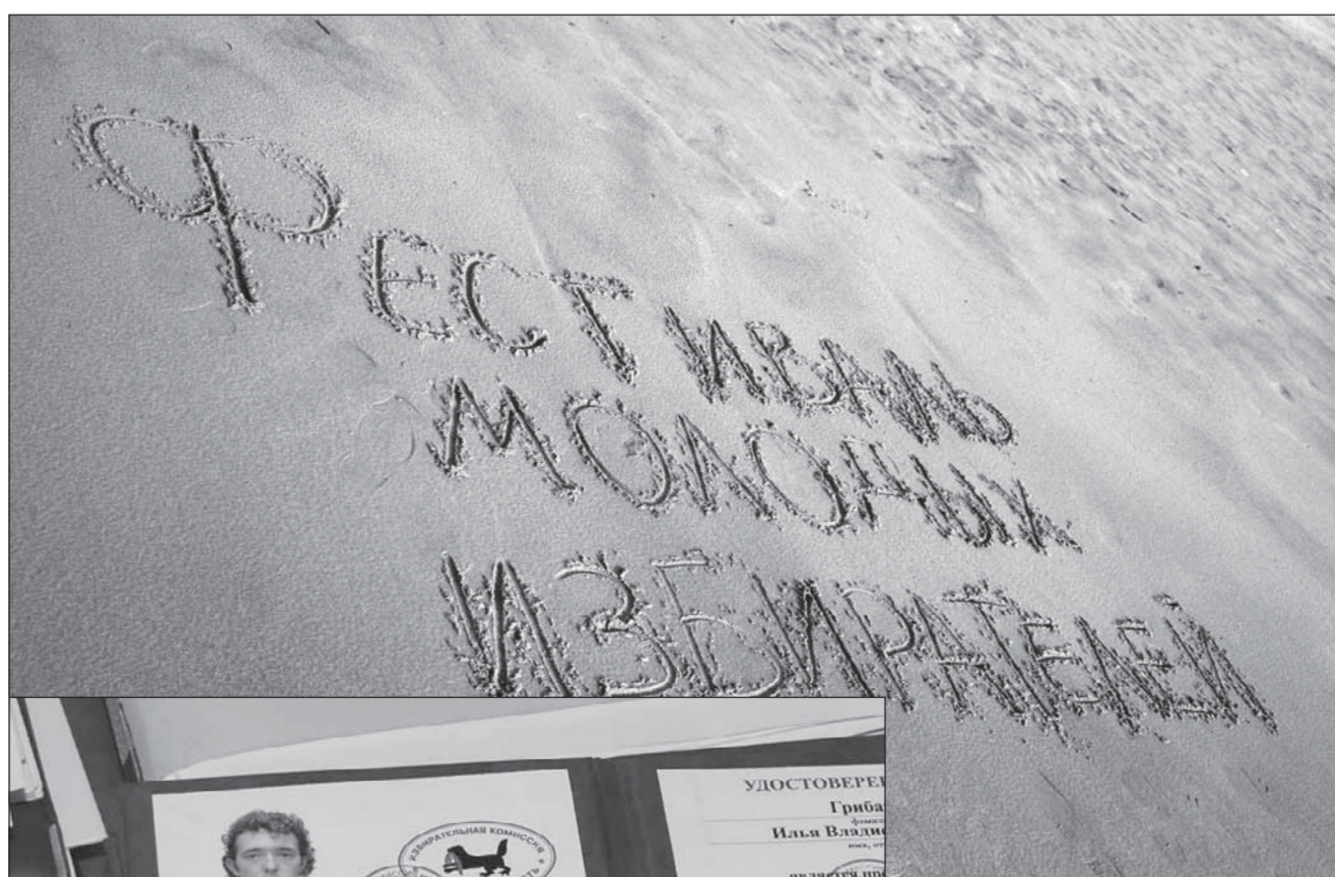 Фестиваль
молодых
избирателей
ИЗБИРАТЕЛЬНАЯ КОМИССИЯ
УДОСТОВЕРЕ
Гриба
Илья Влади
является пр